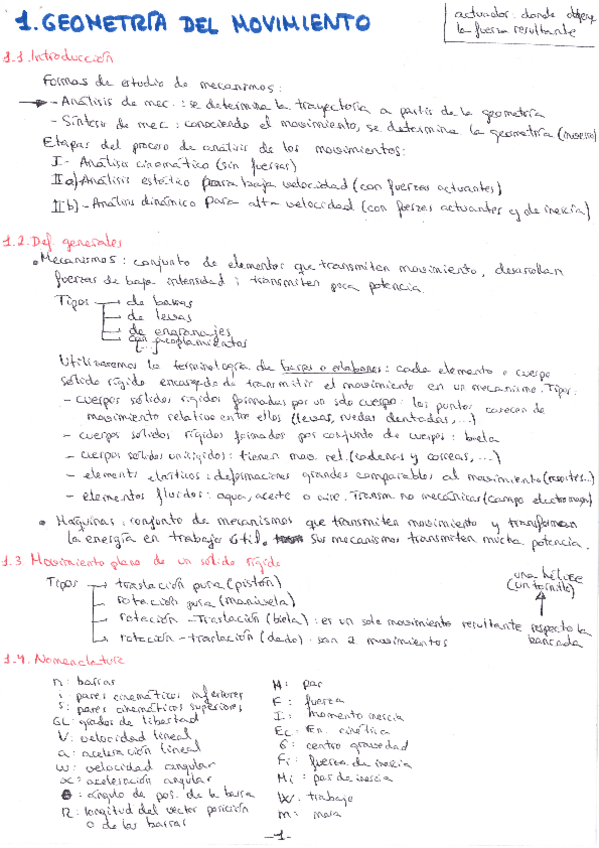 1. GEOMETRÍA DEL MOVIMIENTO
actuador: donde obtiene
la fuerza resultante
1.1. Introducción
Formas de estudio de mecanismos:
→ - Análisis de mec.: se determina la trayectoria a partir de la geometría
- Síntesis de mec: conociendo el movimiento, se determina la geometría (inverso)
Etapas del proceso de análisis de los movimientos:
I - Análisis cinemático (sin fuerzas)
IIa) Análisis estático para baja velocidad (con fuerzas actuantes)
IIb) - Análisis dinámico para alta velocidad (con fuerzas actuantes y de inercia)
1.2. Def. generales
• Mecanismos: conjunto de elementos que transmiten movimiento, desarrollan
fuerzas de baja intensidad y transmiten poca potencia.
Tipos → de barras
de levas
de engranajes
con acoplamientos
Utilizaremos la terminología de barras o eslabones: cada elemento o cuerpo
sólido rígido encargado de transmitir el movimiento en un mecanismo. Tipos:
- cuerpos sólidos rígidos formados por un solo cuerpo: los puntos carecen de
movimiento relativo entre ellos (levas, ruedas dentadas, ...)
- cuerpos sólidos rígidos formados por conjunto de cuerpos: biela
- cuerpos sólidos unirígidos: tienen mov. rel. (cadenas y correas, ...)
- elements elásticos: deformaciones grandes comparables al movimiento (resortes..)
- elementos fluidos: agua, aceite o aire. Transm no mecánicas (campo electromagn)
• Máquinas: conjunto de mecanismos que transmiten movimiento y transforman
la energía en trabajo útil. Sus mecanismos transmiten mucha potencia.
1.3. Movimiento plano de un sólido rígido
Tipos → traslación pura (pistón)
rotación pura (manivela)
rotación - traslación (biela): es un solo movimiento resultante respecto la bancada
rotación - traslación (dado): son 2 movimientos
una hélice
(un tornillo)
1.4. Nomenclatura
n: barras
i: pares cinemáticos inferiores
s: pares cinemáticos superiores
GL: grados de libertad
V: velocidad lineal
a: aceleración lineal
ω: velocidad angular
α: aceleración angular
θ: ángulo de pos. de la barra
R: longitud del vector posición
o de las barras
M: par
F: fuerza
I: momento inercia
Ec: En. cinética
G: centro gravedad
Fi: fuerza de inercia
Mi: par de inercia
W: trabajo
m: masa
-1-